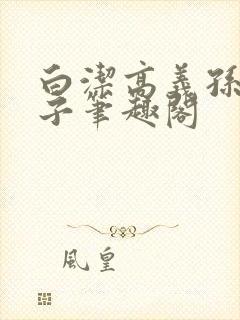 白潔高義孫
子筆趣閣
風皇